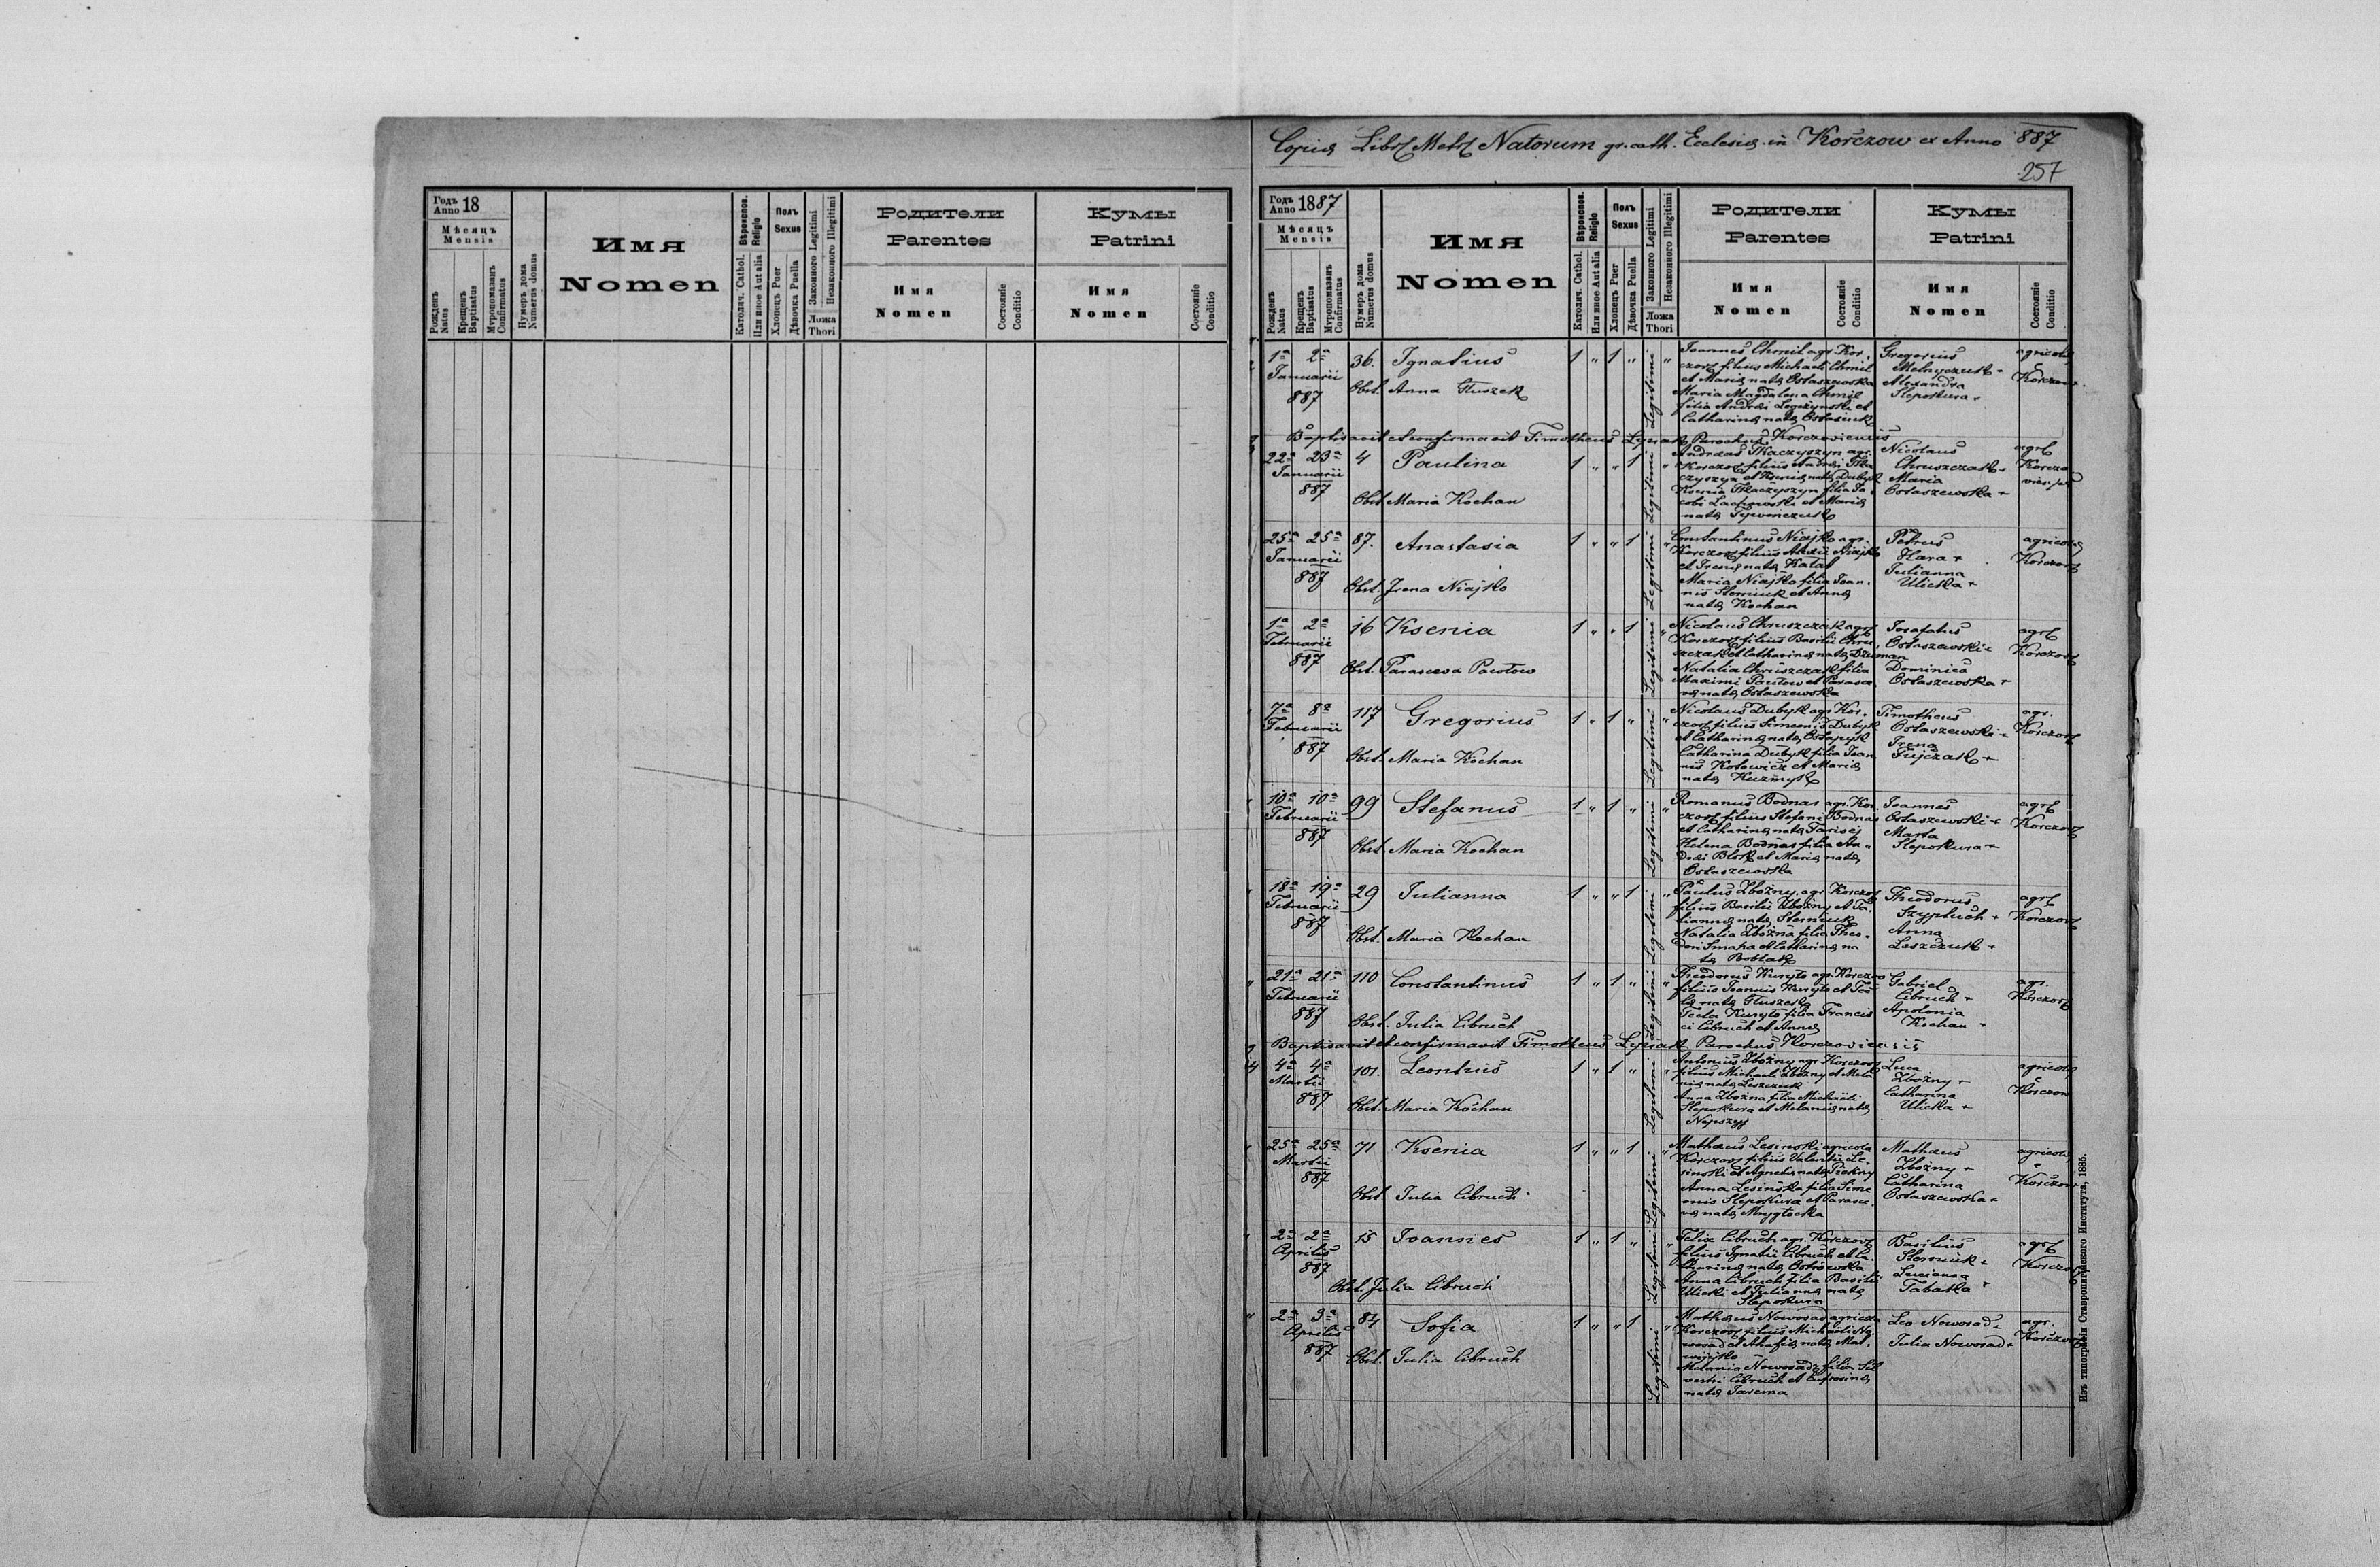 Годъ
Anno 18
Мѣсяцъ
Mensis
Рожденъ
Natus
Крещенъ
Baptisatus
Муропомазанъ
Confirmatus
Нумеръ дома
Numerus domus
Имя
Nomen
Вѣроиспов.
Religio
Католич. Cathol.
Или иное Aut alia
Полъ
Sexus
Хлопецъ Puer
Дѣвочка Puella
Законного Legitimi
Незаконного Illegitimi
Ложа
Thori
Родители
Parentes
Имя
Nomen
Состояніе
Conditio
Кумы
Patrini
Имя
Nomen
Состояніе
Conditio
Copia Libri Metr Natorum gr. cath. Ecclesiae in Korczow ex Anno 887
257
Годъ
Anno 1887
Мѣсяцъ
Mensis
Рожденъ
Natus
Крещенъ
Baptisatus
Муропомазанъ
Confirmatus
Нумеръ дома
Numerus domus
Имя
Nomen
Вѣроиспов.
Religio
Католич. Cathol.
Или иное Aut alia
Полъ
Sexus
Хлопецъ Puer
Дѣвочка Puella
Законного Legitimi
Незаконного Illegitimi
Ложа
Thori
Родители
Parentes
Имя
Nomen
Состояніе
Conditio
Кумы
Patrini
Имя
Nomen
Состояніе
Conditio
1a 2a 36. Ignatius 1 " 1 " Legitimi "
Januarii
887
Obst. Anna Głuszek
Joannes Chmil agr. Kor.
czow filius Michaeli Chmil
et Maria nata Ostaszewska
Maria Magdalena Chmil
filia Andrei
Catharina nata
Gregorius
Melnyczuk
Alexandra
Slepokura
agricola
Korczow
Baptisavit et confirmavit Timotheus Parochus Korczoviensis
22a 23a 4 Paulina 1 " " 1 Legitimi "
Januarii
887
Obst. Maria Kochan
Andreas Tkaczyszyn agr.
Korczow filius Andrei Tka
czyszyn et Ksenia nata Dubyk
Ksenia Tkaczyszyn filia Ja
cobi et Maria
nata
Nicolaus
Chruszczak
Maria
Ostaszewska
25a 25a 87. Anastasia 1 " " 1 Legitimi "
Januarii
887
Obst. Irena Niajko
Constantinus Niajko agr.
Korczow filius Alexii Niajko
et Irena nata
Maria Niajko filia Joan
nis et Anna
nata Kochan
Petrus
Hara
Julianna
Ulicka
agricola
Korczow
1a 2a 16 Ksenia 1 " " 1 Legitimi "
Februarii
887
Obst. Parasceva Pawłow
Nicolaus Chruszczak agr
Korczow filius Basilii Chru
szczak et Catharina nata Dziuman
Natalia Chruszczak filia
Maximi Pawłow et Parasce
va nata Ostaszewska
Josafatus
Ostaszewski
Dominica
Ostaszewska
Korczow
7a 8a 117 Gregorius 1 " 1 " Legitimi "
Februarii
887
Obst. Maria Kochan
Nicolaus Dubyk agr. Kor.
czow filius Simeonis Dubyk
et Catharina nata Ostapyk
Catharina Dubyk filia Joan
nis et Maria
nata Kuzmyk
Timotheus
Ostaszewski
Irena
agr.
Korczow
10a 10a 99 Stefanus 1 " 1 " Legitimi "
Februarii
887
Obst. Maria Kochan
Romanus Bodnar agr. Kor.
czow filius Stefani Bodnar
et Catharina nata
Helena Bodnar filia An
drei et Maria nata
Ostaszewska
Joannes
Ostaszewski
Marta
Slepokura
Korczow
18a 19a 29 Julianna 1 " " 1 Legitimi "
Februarii
887
Obst. Maria Kochan
Paulus Zbożny agr. Korczow
filius Basilii Zbożny et Ju
lianna nata
Natalia Zbożna filia Theo
dori et Catharina na
ta
Theodorus
Anna
Leszczuk
Korczow
21a 21a 110 Constantinus 1 " 1 " Legitimi "
Februarii
887
Obst. Julia Cibruch
Theodorus Kuryło agr. Korczow
filius Joannis Kuryło et Tec
la nata
Tecla Kuryło filia Francis
ci Cibruch et Anna
Gabriel
Cibruch
Apolonia
Kochan
agr.
Korczow
Baptisavit et confirmavit Timotheus Parochus Korczoviensis
4a 4a 101. Leontius 1 " 1 " Legitimi "
Martii
887
Obst. Maria Kochan
Antonius Zbożny agr. Korczow
filius Michaeli Zbożny et Mela
nia nata Leszczuk
Anna Zbożna filia Michaeli
Slepokura et Melania nata
Luca
Zbożny
Catharina
Ulicka
agricola
Korczow
25a 25a 71 Ksenia 1 " " 1 Legitimi "
Martii
887
Obst. Julia Cibruch
Mathaeus Lesinski agricola
Korczow filius Valentii Le
sinski et Agneta nata
Anna Lesinska filia Sime
onis Slepokura et Parasce
va nata
Mathaeus
Zbożny
Catharina
Ostaszewska
agricola
Korczow
2a 2a 15 Joannes 1 " 1 " Legitimi "
Aprilis
887
Obst. Julia Cibruch
Felix Cibruch agr. Korczow
filius Ignatii Cibruch et Ca
tharina nata Ostrowska
Anna Cibruch filia Basilii
Ulicki et Julianna nata
Slepokura
Basilius
Luciana
Korczow
2a 3a 84 Sofia 1 " " 1 Legitimi "
Aprilis
887
Obst. Julia Cibruch
Mathaeus Nowosad agricola
Korczow filius Michaeli No
wosad et Ahafia nata
Melania Nowosad filia Sil
vestri Cibruch et Eufrosina
nata
Leo Nowosad
Julia Nowosad
agr.
Korczow
Изъ типографіи Ставропигійского Института, 1885.